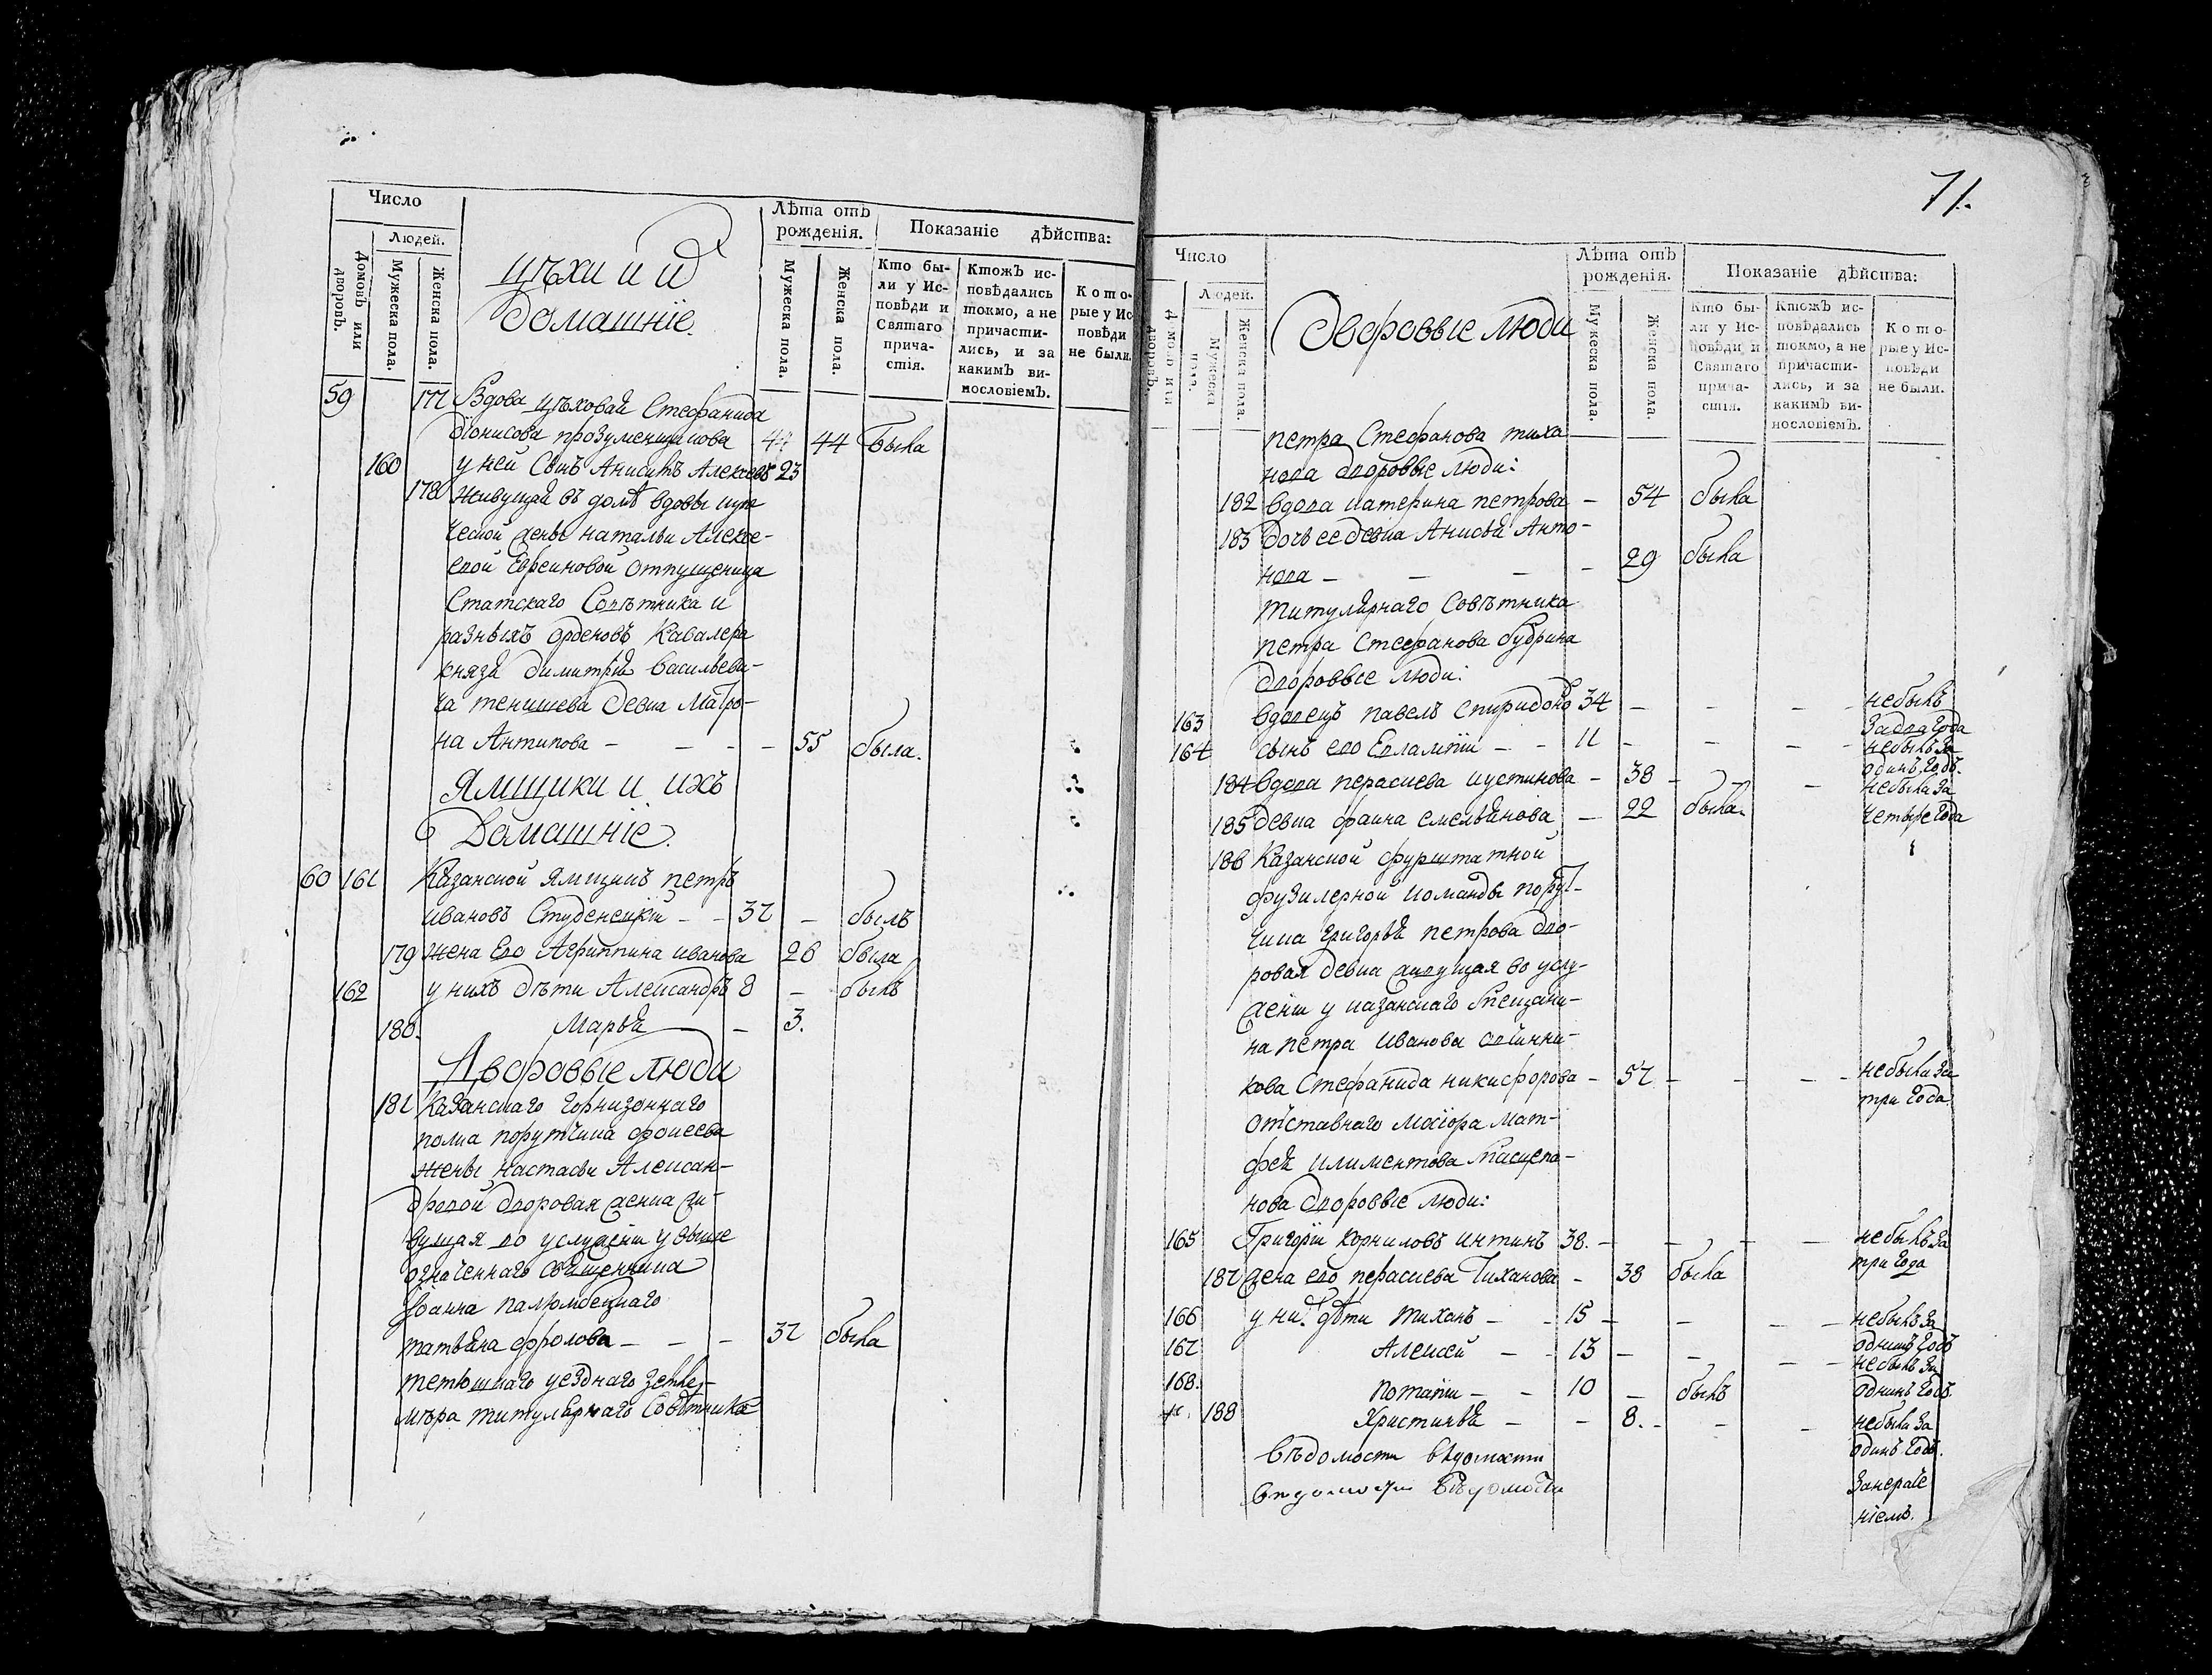 Число
Людей.
Домовъ или дворовъ.
Мужеска пола.
Женска пола.
цѣхи и и
домашніе.
Лѣта отъ рожденія.
Мужеска пола.
Женска пола.
Показаніе дѣйства:
Кто были у Исповѣди и Святаго причастія.
Ктожъ исповѣдались токмо, а не причастились, и за какимъ винословіемъ.
Которые у Исповѣди не были.
59 177 Вдова цѣховая Стефанида
Діонисова прозументщикова 44 44 была
160 у ней сынъ Анисимъ Алексѣевъ 23
178 живущая въ домѣ вдовы купе
ческой жены натальи Алексе-
евой Евреиновой отпущеница
Статскаго Совѣтника и
разныхъ орденовъ Кавалера
князя димитрія васильеви-
ча тенишева девка Матро-
на Антипова - - - - 55 была.
Ямщики и ихъ
Домашніе.
60 161 Казанской ямщикъ петръ
ивановъ Студенецкій - - 37 - былъ
179 жена Его Агриппина иванова 26 была
162 у нихъ дѣти Александръ 8 - былъ
180. Марья - 3.
Дворовые люди
181 Казанскаго горнизоннаго
полка порутчика фокеева
жены настасьи Алексан-
дровой дворовая женка жи-
вущая во услуженіи у выше
означеннаго священника
Іоанна палюмбецкаго
татьяна фролова - - - 37 была
тетюшкаго уезднаго землем-
мѣра титулярнаго Совѣтника
71.
Число
Людей.
Домовъ или дворовъ.
Мужеска пола.
Женска пола.
Дворовые люди
Лѣта отъ рожденія.
Мужеска пола.
Женска пола.
Показаніе дѣйства:
Кто были у Исповѣди и Святаго причастія.
Ктожъ исповѣдались токмо, а не причастились, и за какимъ винословіемъ.
Которые у Исповѣди не были.
петра Стефанова тиха
нова дворовые люди:
182 вдова катерина петрова - 54 была
183 дочь ее девка Анисья Анто-
нова - - - - 29 была
титулярнаго Совѣтника
петра Стефанова бубрина
дворовые люди:
163 вдовецъ павелъ спиридоно 34 - - - - небылъ
за два года
164 сынъ ево Евлампіи - - 11 - - - - небылъ за
одинъ годъ.
184 вдова пераскева иустинова - 38 - - - небыла за
четыре года
185 девка фаина емельянова - 22 была.
186 Казанской фурштатной
фузилерной команды порут-
чика григорья петрова дво-
ровая девка живущая во услу-
женіи у казанскаго мещани-
на петра иванова
кова Стефанида никифорова - 57 - - - - небыла за
три года
отставнаго маіора мат-
фея климентова
нова дворовые люди:
165 Григоріи корниловъ 38. - - - - небылъ за
три года
187 жена ево пераскева Тиханова - 38 была
166 у них дѣти тиханъ - - 15 - - - - небылъ за
одинъ годъ
167 Алексеи - - 13 - - - - небылъ за
одинъ годъ.
168. потапіи - - 10 - былъ
188 Христинья - - 8. - - - небыла за
одинъ годъ.
вѣдомости вѣдомости
вѣдомости вѣдомости